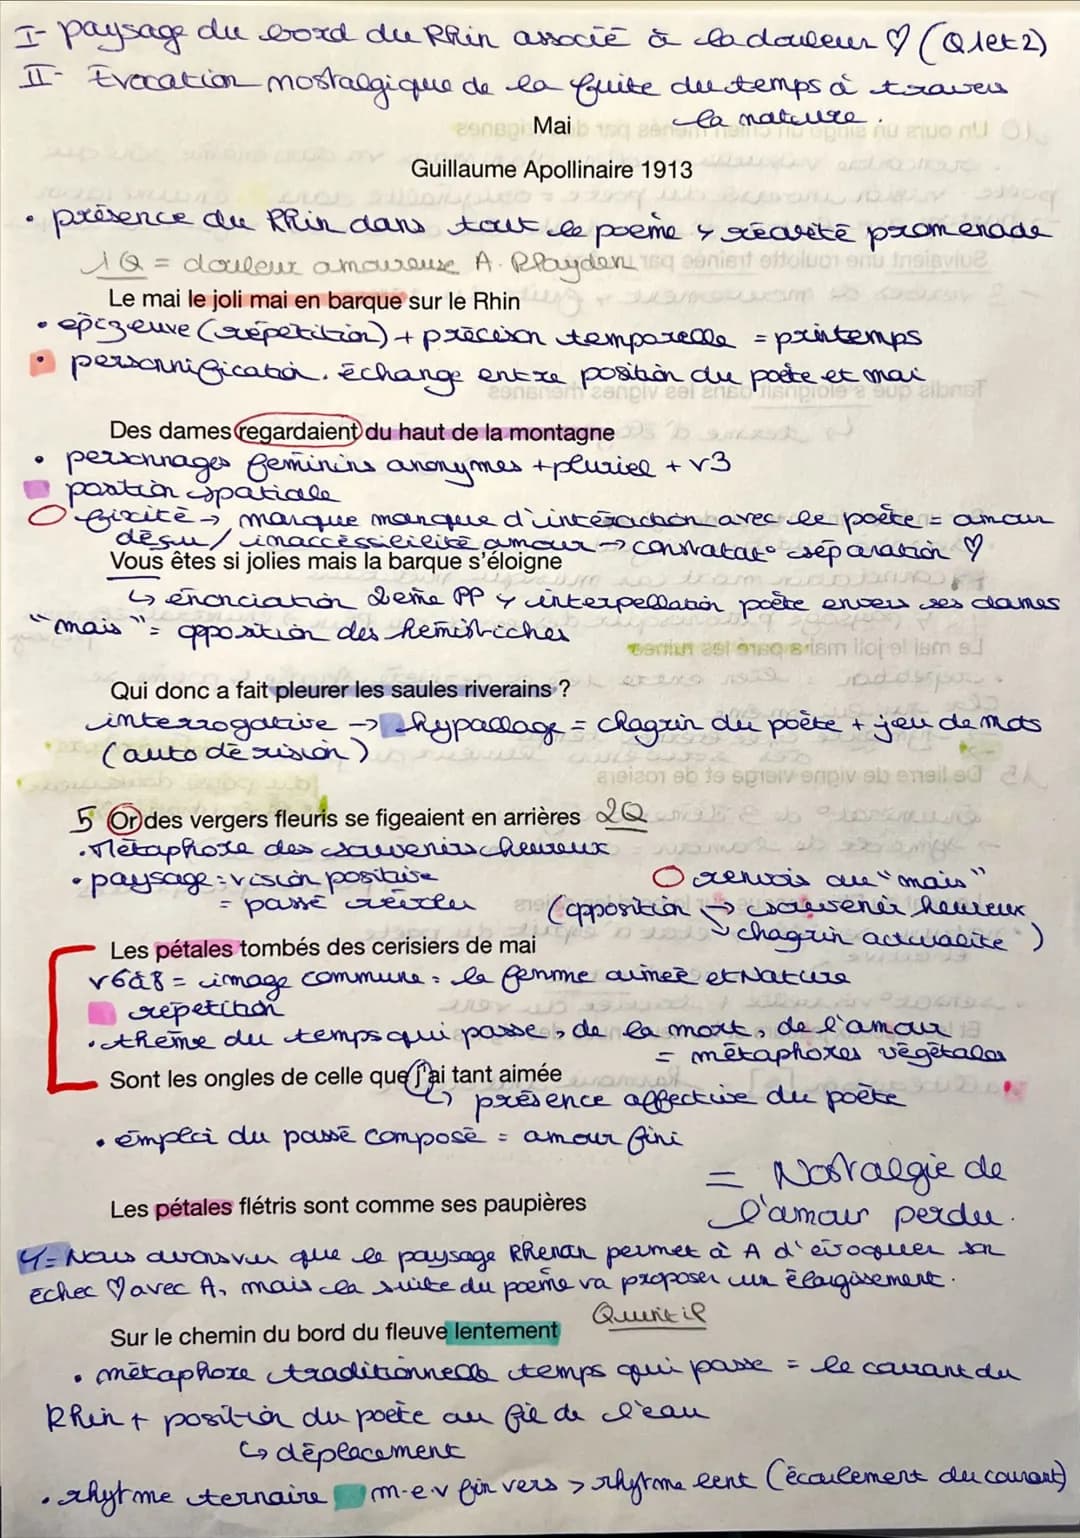 I- paysage du bord du Rhin associé à la douleur ♡ (Q1et2)
II- Évocation nostalgique de la fuite du temps à travers
la nature.
Mai
Guillaume Apollinaire 1913
• présence du Rhin dans tout le poème → réalité promenade
1Q = douleur amoureuse A. Playden
Le mai le joli mai en barque sur le Rhin
• épizeuve (répétition) + précison temporelle = printemps
• personnification. échange entre position du poète et mai
Des dames regardaient du haut de la montagne
• personnages féminins anonymes + pluriel + v3
position spatiale
fixité → marque manque d'intéraction avec le poète = amour
déçu / inaccessibilité amour → constatat° séparation ♡
Vous êtes si jolies mais la barque s'éloigne
↳ énonciation 2eme PP → interpellation poète envers ses dames
"mais" = opposition des hémistiches
Qui donc a fait pleurer les saules riverains ?
interrogative → hypallage = chagrin du poète + jeu de mots
(auto dérision)
5 Or des vergers fleuris se figeaient en arrières 2Q
. Métaphore des souvenirs heureux
• paysage : vision positive
= passé révolu
renvois au "mais"
(opposition → souvenir heureux
↘ chagrin actualité)
Les pétales tombés des cerisiers de mai
v6à8 = image commune : la femme aimée et Nature
répetition
• thème du temps qui passe, de la mort, de l'amour
= métaphores végétales
Sont les ongles de celle que j'ai tant aimée
↳ présence affective du poète
• émploi du passé composé = amour fini
= Nostalgie de
l'amour perdu.
Les pétales flétris sont comme ses paupières
Nous avons vu que le paysage Rhénan permet à A d'évoquer son
échec ♡ avec A, mais la suite du poème va proposer un élargissement.
Quintil
Sur le chemin du bord du fleuve lentement
• métaphore traditionnelle temps qui passe = le courant du
Rhin + position du poète au fil de l'eau
↳ déplacement
• rhytme ternaire m-e-v fin vers > rhytme lent (écoulement du courant)